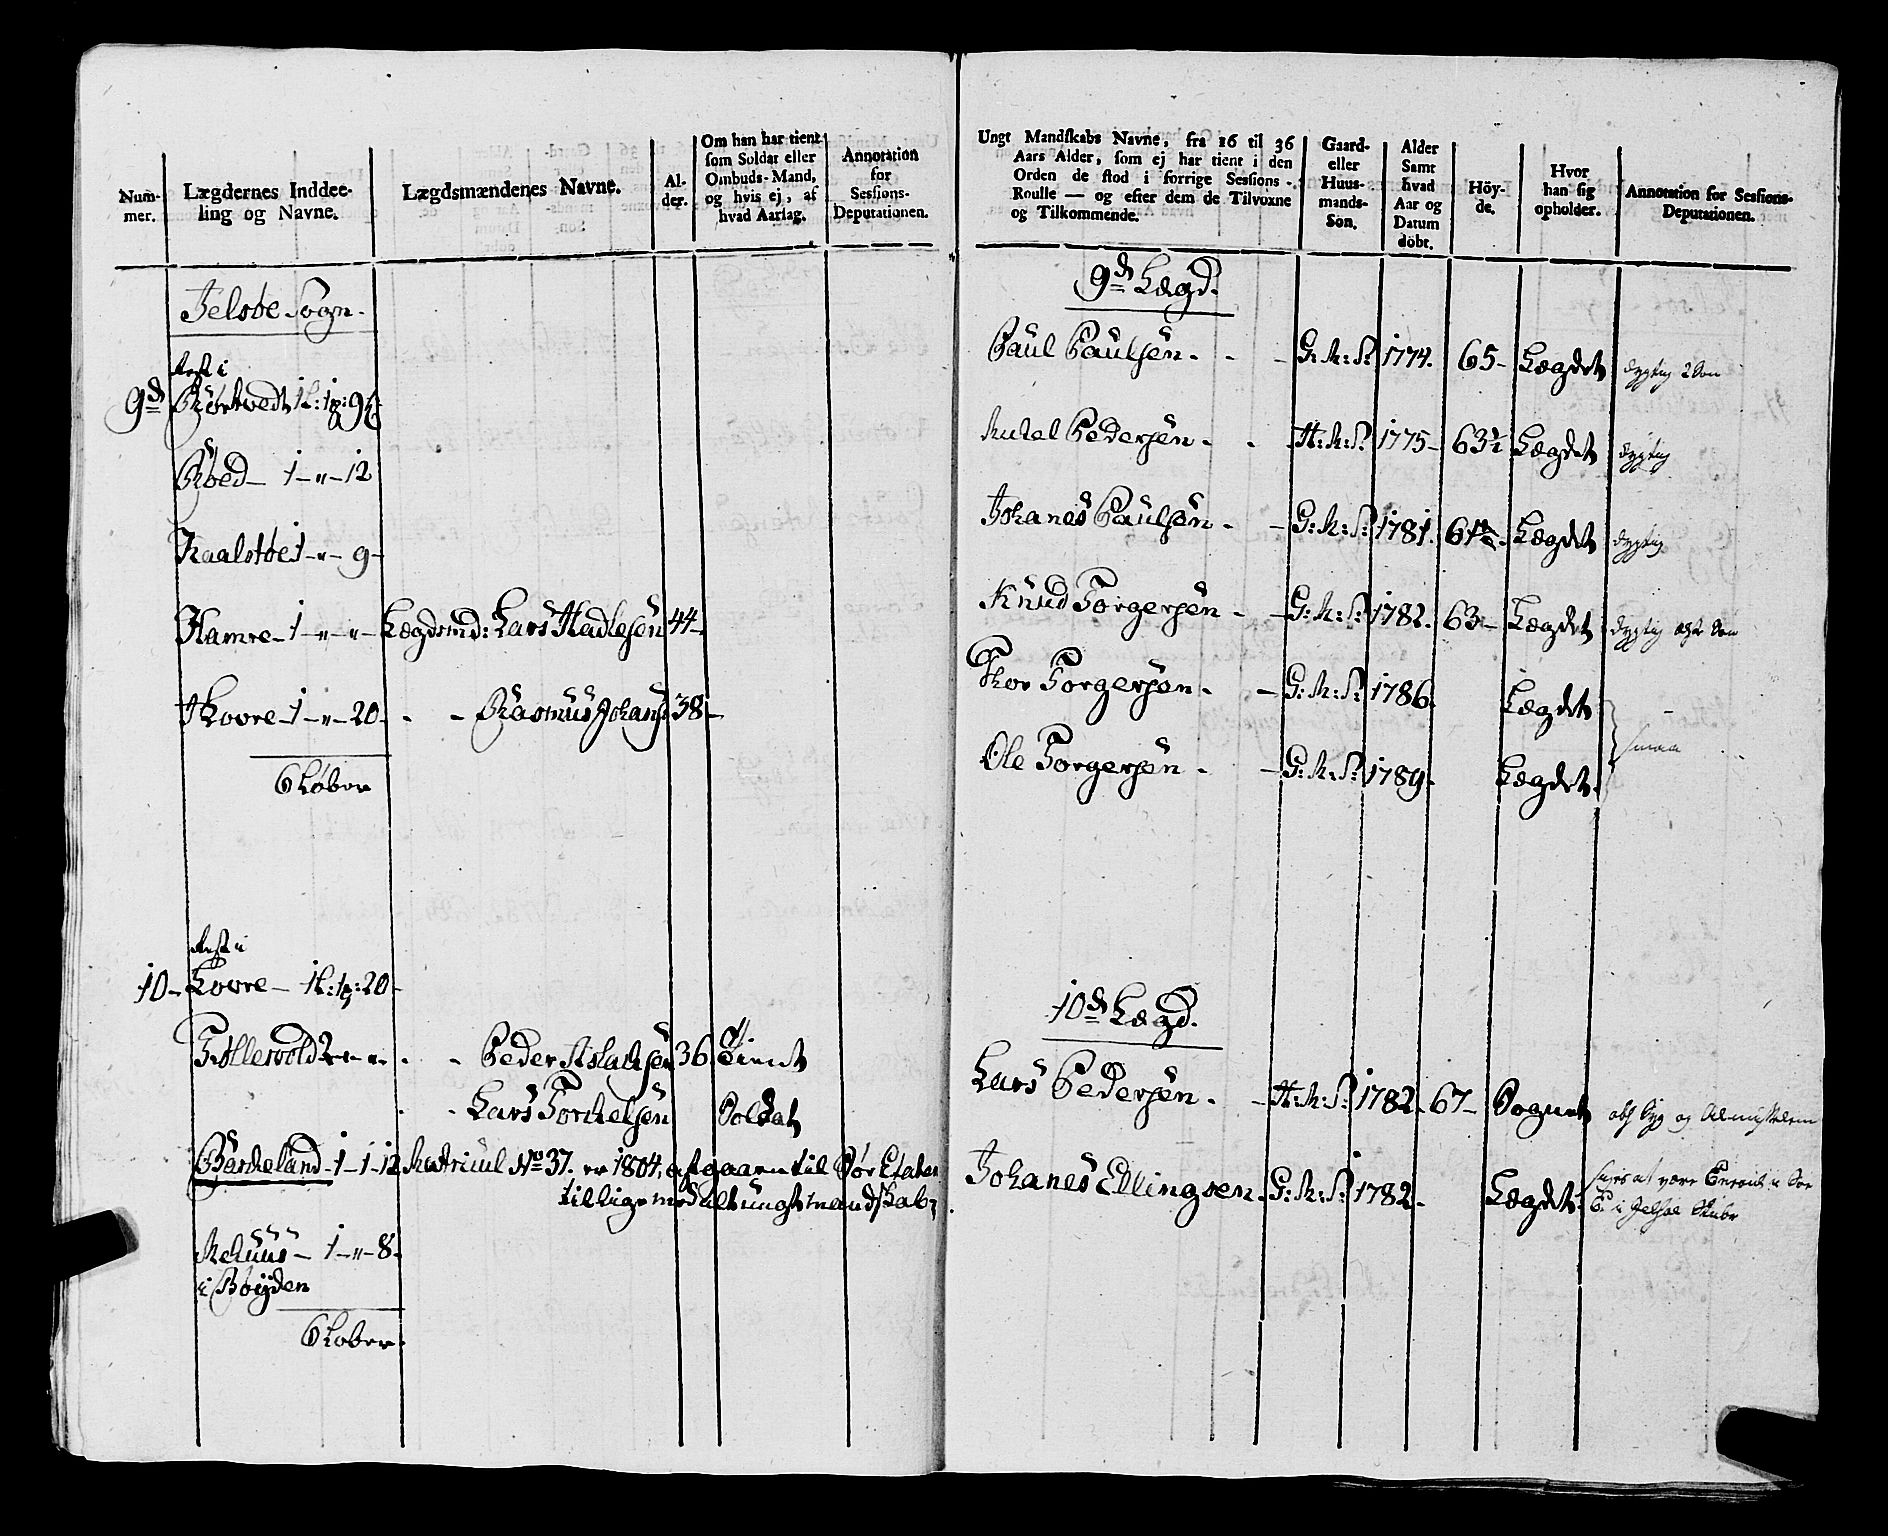 Num-
mer.
Lægdernes Inddee-
ling og Navne.
Lægdsmændenes Navne.
Al-
der.
Om han har tient
som Soldat eller
Ombuds-Mand,
og hvis ej, af
hvad Aarsag.
Annotation
for
Sessions-
Deputationen.
Jelsøe Sogn.
Rest i
9de Børtvedt 1 L: 1 p: 9
Røed 1 - " - 12
Haalstøe 1 - " - 9 -
Hamre - 1 - " - " - Lægdsmd: Lars Hadlesen 44 -
Hovre - 1 - " - 20 - - - Rasmus Johans 38 -
6 Løber
Rest i
10 - Hovre - 1 L: 1 p: 20 -
Tøllevold 2 - " - " - - - Peder Aslachsen 36. Tient
- - Lars Torchelsen Soldat
Barkeland - 1 - 1 - 12 Matricul No 37. er 1804, afgaaen til Sør Etaten
tillige med alt ungt mandskab
Mehuus - 1 - " - 8 -
i Bøyden
6 Løber.
Ungt Mandskabs Navne, fra 16 til 36
Aars Alder, som ej har tient i den
Orden de stod i forrige Sessions-
Roulle — og efter dem de Tilvoxne
og Tilkommende.
Gaard-
eller
Huus-
mands-
Søn.
Alder
Samt
hvad
Aar og
Datum
döbt.
Höy-
de.
Hvor
han sig
opholder.
Annotation for Sessions-
Deputationen.
9de Lægd.
Paul Paulsen - - - G: M: S: 1774. 65 - Lægdet dygtig 2 Søn
Michel Pedersen - - - H: M: S: 1775 - 63½ Lægdet dygtig
Johanes Paulsen - - G: M: S: 1781. 61½ - Lægdet dygtig
Knud Torgersen - - G: M: S: 1782. 63 - Lægdet dygtig ældst Søn
Thor Torgersen - - G: M: S: 1786. Lægdet
smaa
Ole Torgersen - - G: M: S: 1789. Lægdet.
10de Lægd.
Lars Pedersen - - H: M: S: 1782 - 67 - Sognet og
Johanes Ellingsen - G: M: S: 1782 - Lægdet siges at være i Sør
E: i Jelsøe Skibr